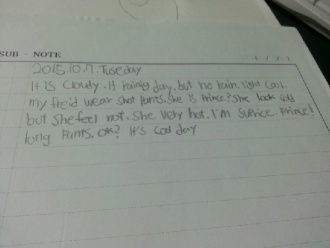 SUB - NOTE
2015.10.7. Tuseday
It is cloudy. It rainig day, but no rain. light cool.
my freid wear shot pants. she is prince? she look cold
but she feel not. she very hot. I'm suprice prince!
long pants, ok? It's cool day